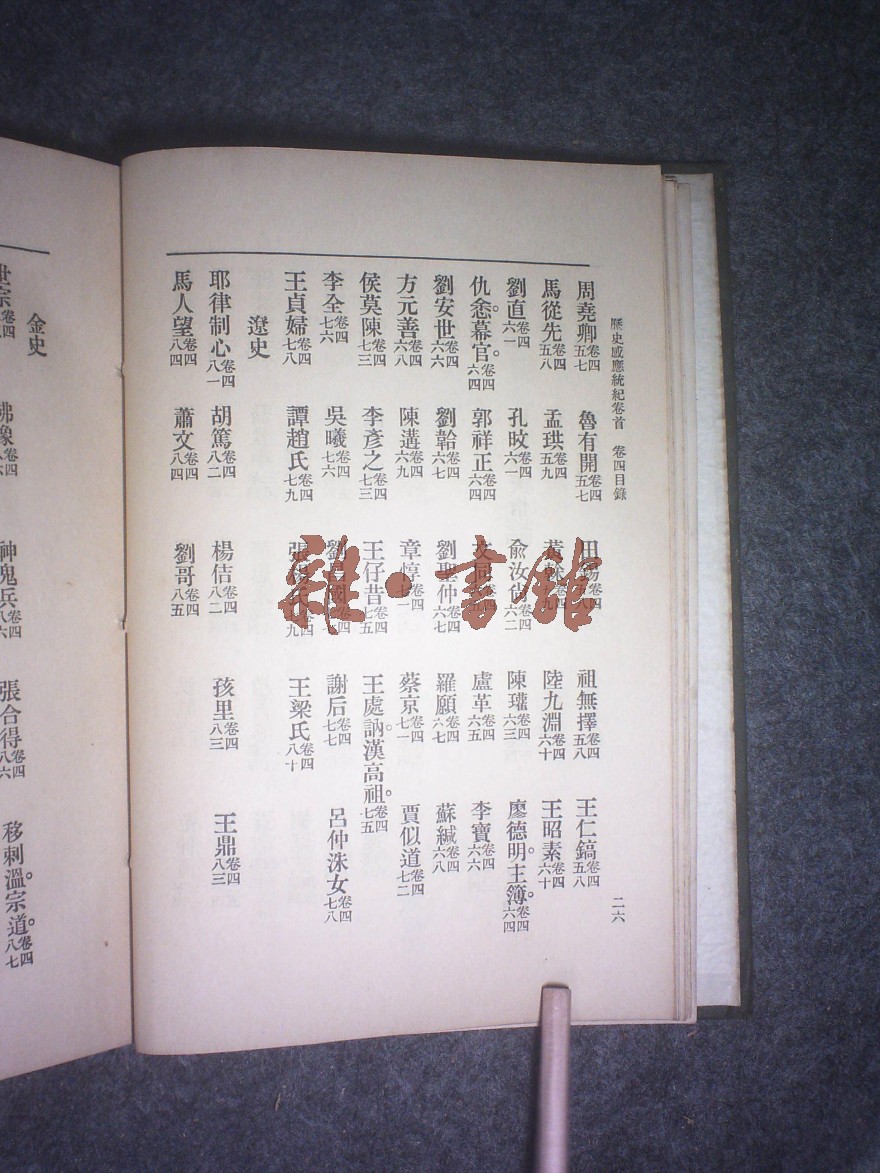 歷史感應統紀卷首 卷四目錄 二六
周堯卿卷四五七 魯有開卷四五七 祖無擇卷四五八 王仁鎬卷四五八
馬從先卷四五八 孟珙卷四五九 陸九淵卷四六十 王昭素卷四六十
劉直卷四六一 孔旼卷四六一 俞汝尚卷四六二 陳瓘卷四六三 廖德明。主簿。卷四六四
仇悆幕官。卷四六四 郭祥正卷四六四 盧革卷四六五 李寶卷四六六
劉安世卷四六六 劉韐卷四六七 劉聖仲卷四六七 羅願卷四六七 蘇緘卷四六八
方元善卷四六八 陳遘卷四六九 章惇卷四七一 蔡京卷四七一 賈似道卷四七二
侯莫陳卷四七三 李彥之卷四七三 王仔昔卷四七五 王處訥。漢高祖。卷四七五
李全卷四七六 吳曦卷四七六 謝后卷四七七 呂仲洙女卷四七八
王貞婦卷四七八 譚趙氏卷四七九 王梁氏卷四八十
遼史
耶律制心卷四八一 胡篤卷四八二 楊佶卷四八二 孩里卷四八三 王鼎卷四八三
馬人望卷四八四 蕭文卷四八四 劉哥卷四八五
金史
張合得卷四八六 移剌溫。宗道。卷四八七
雜·書館